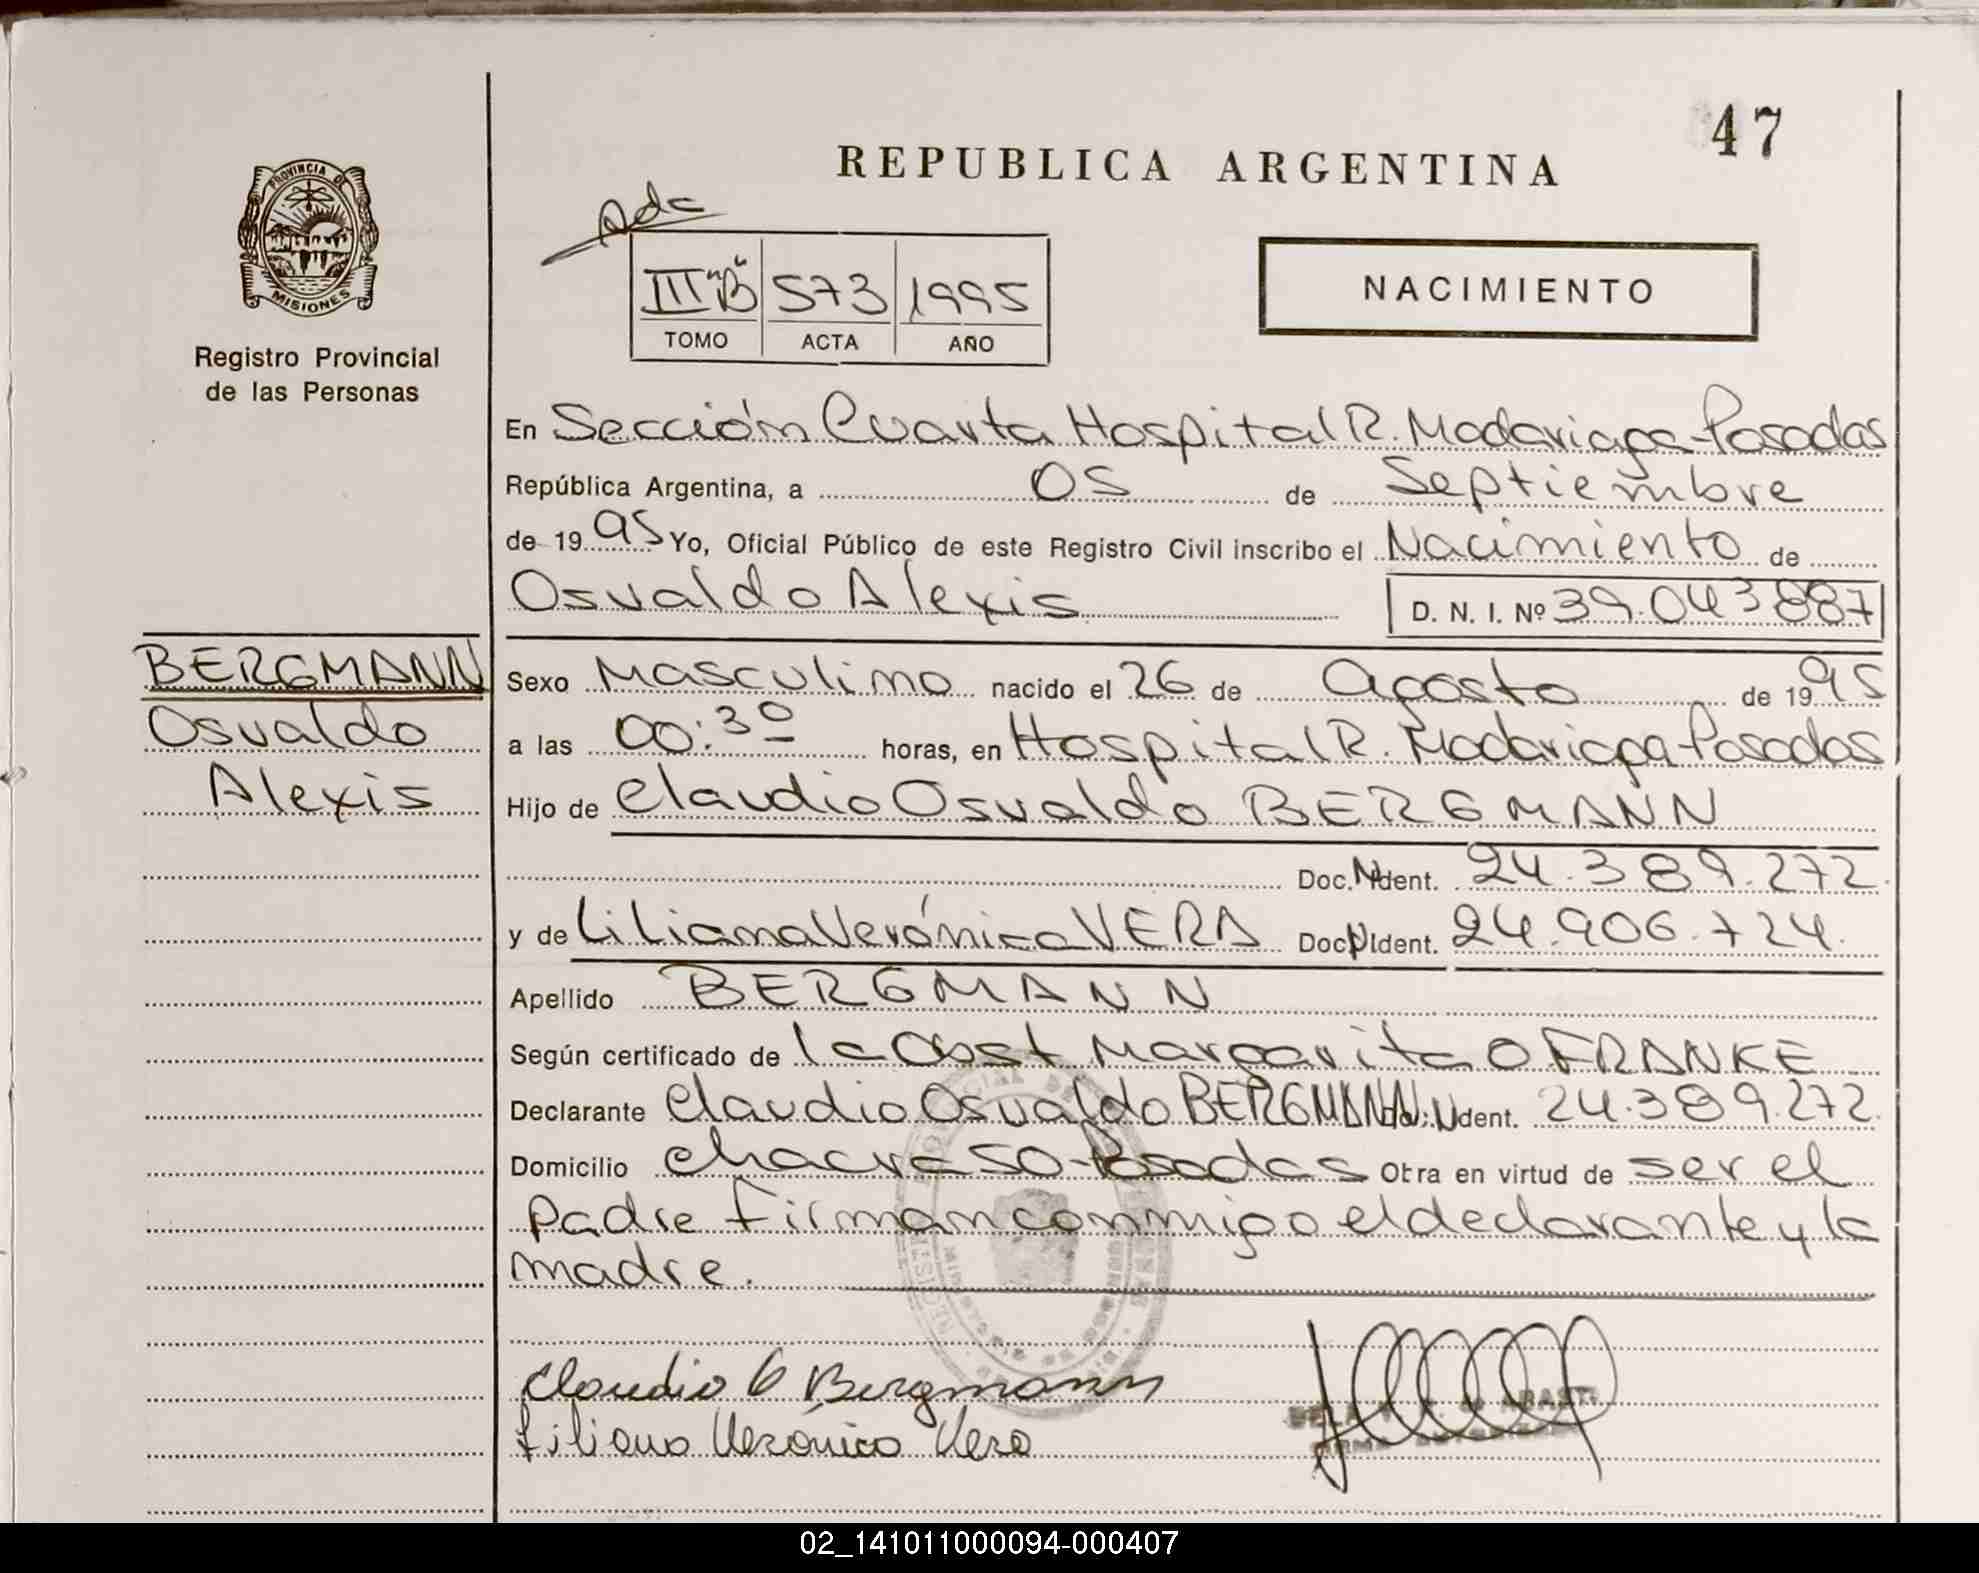 47
REPUBLICA ARGENTINA
PROVINCIA DE
MISIONES
Registro Provincial
de las Personas
III "B" 573 1995
TOMO ACTA AÑO
NACIMIENTO
En Sección Cuarta Hospital R. Madariaga-Posadas
República Argentina, a 05 de Septiembre
de 1995 Yo, Oficial Público de este Registro Civil inscribo el Nacimiento de
Osvaldo Alexis D. N. I. Nº 39.043887
BERGMANN
Osvaldo
Alexis
Sexo Masculino nacido el 26 de Agosto de 1995
a las 00:30 horas, en Hospital R. Madariaga-Posadas
Hijo de Claudio Osvaldo BERGMANN
Doc. Ident. 24.389.272
y de Liliana Verónica VERA Doc. Ident. 24.906.724.
Apellido BERGMANN
Según certificado de la Obst Margarita O FRANKE
Declarante Claudio Osvaldo BERGMANN Doc. Ident. 24.389.272.
Domicilio chacra 50-Posadas Otra en virtud de ser el
padre firman conmigo el declarante y la
madre.
Claudio O Bergmann
Liliana Verónica Vera
02_141011000094-000407